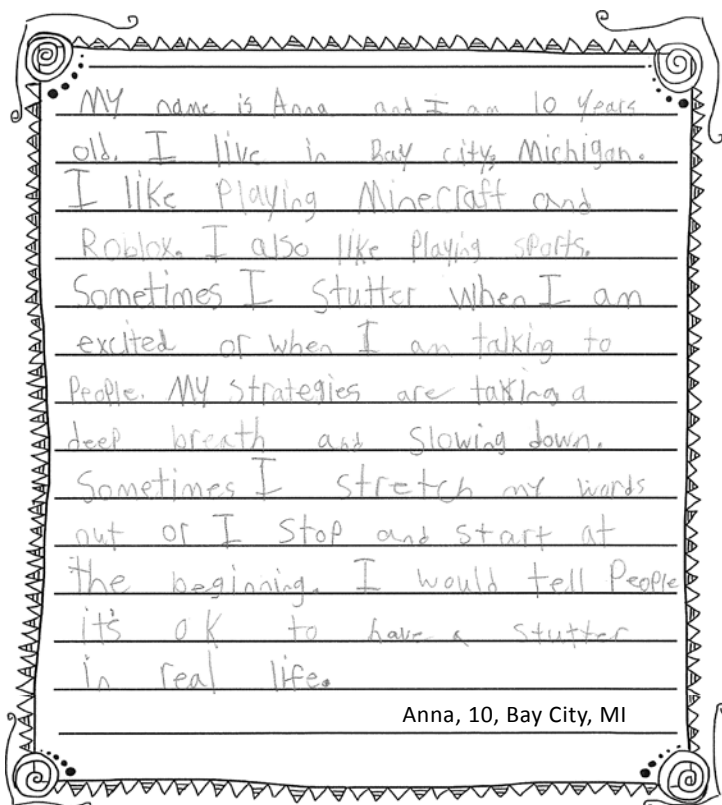 My name is Anna and I am 10 years
old. I live in Bay city, Michigan.
I like Playing Minecraft and
Roblox. I also like Playing sports.
Sometimes I stutter when I am
excited or when I am talking to
People. My strategies are taking a
deep breath and slowing down.
Sometimes I stretch my words
out or I stop and start at
the beginning. I would tell People
it's ok to have a stutter
in real life.
Anna, 10, Bay City, MI